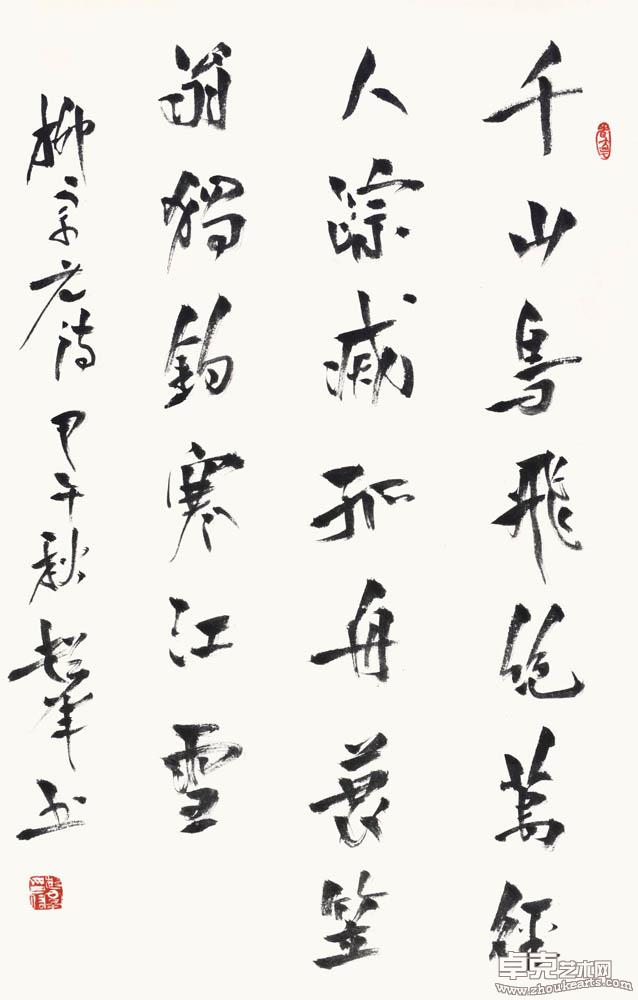 千山鳥飛絕萬徑
人踪滅孤舟蓑笠
翁獨釣寒江雪
柳宗元詩 甲午秋 書
卓克艺术网
www.zhoukearts.com